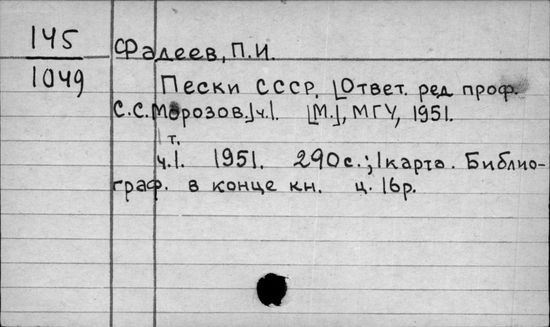 145
1049
Фадеев, П.И.
Пески СССР. [Ответ. ред проф.
С.С.Морозов.] ч.1. [М.], МГУ, 1951.
т.
ч.1. 1951. 290 с.; 1 карта. Библио-
граф. в конце кн. ц. 16р.